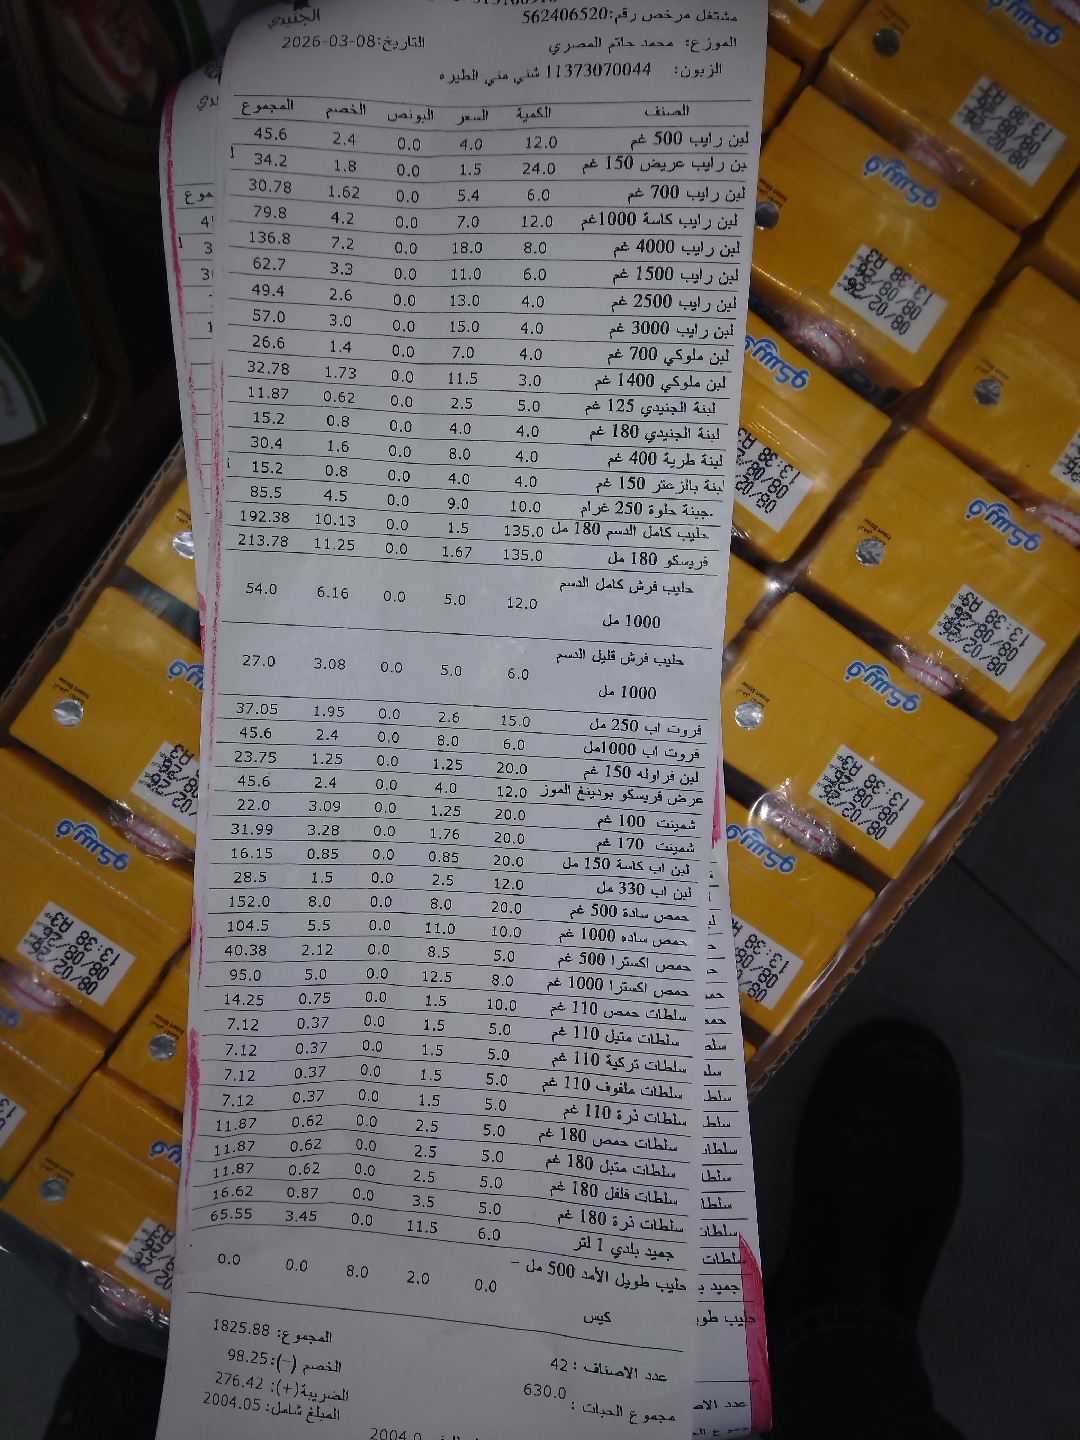 الجنيدي
مشتغل مرخص رقم:562406520
الموزع: محمد حاتم المصري
التاريخ:2026-03-08
الزبون: 11373070044 شني مني الطيره
الصنف الكمية السعر البونص الخصم المجموع
لبن رايب 500 غم 12.0 4.0 0.0 2.4 45.6
بن رايب عريض 150 غم 24.0 1.5 0.0 1.8 34.2
لبن رايب 700 غم 6.0 5.4 0.0 1.62 30.78
لبن رايب كاسة 1000غم 12.0 7.0 0.0 4.2 79.8
لبن رايب 4000 غم 8.0 18.0 0.0 7.2 136.8
لبن رايب 1500 غم 6.0 11.0 0.0 3.3 62.7
لبن رايب 2500 غم 4.0 13.0 0.0 2.6 49.4
لبن رايب 3000 غم 4.0 15.0 0.0 3.0 57.0
لبن ملوكي 700 غم 4.0 7.0 0.0 1.4 26.6
لبن ملوكي 1400 غم 3.0 11.5 0.0 1.73 32.78
لبنة الجنيدي 125 غم 5.0 2.5 0.0 0.62 11.87
لبنة الجنيدي 180 غم 4.0 4.0 0.0 0.8 15.2
لبنة طرية 400 غم 4.0 8.0 0.0 1.6 30.4
لبنة بالزعتر 150 غم 4.0 4.0 0.0 0.8 15.2
جبنة حلوة 250 غرام 10.0 9.0 0.0 4.5 85.5
حليب كامل الدسم 180 مل 135.0 1.5 0.0 10.13 192.38
فريسكو 180 مل 135.0 1.67 0.0 11.25 213.78
حليب فرش كامل الدسم
12.0 5.0 0.0 6.16 54.0
1000 مل
حليب فرش قليل الدسم
6.0 5.0 0.0 3.08 27.0
1000 مل
فروت اب 250 مل 15.0 2.6 0.0 1.95 37.05
فروت اب 1000مل 6.0 8.0 0.0 2.4 45.6
لبن فراوله 150 غم 20.0 1.25 0.0 1.25 23.75
عرض فريسكو بودينغ الموز 12.0 4.0 0.0 2.4 45.6
شمينت 100 غم 20.0 1.25 0.0 3.09 22.0
شمينت 170 غم 20.0 1.76 0.0 3.28 31.99
لبن اب كاسة 150 مل 20.0 0.85 0.0 0.85 16.15
لبن اب 330 مل 12.0 2.5 0.0 1.5 28.5
حمص سادة 500 غم 20.0 8.0 0.0 8.0 152.0
حمص ساده 1000 غم 10.0 11.0 0.0 5.5 104.5
حمص اكسترا 500 غم 5.0 8.5 0.0 2.12 40.38
حمص اكسترا 1000 غم 8.0 12.5 0.0 5.0 95.0
سلطات حمص 110 غم 10.0 1.5 0.0 0.75 14.25
سلطات متبل 110 غم 5.0 1.5 0.0 0.37 7.12
سلطات تركية 110 غم 5.0 1.5 0.0 0.37 7.12
سلطات ملفوف 110 غم 5.0 1.5 0.0 0.37 7.12
سلطات ذرة 110 غم 5.0 1.5 0.0 0.37 7.12
سلطات حمص 180 غم 5.0 2.5 0.0 0.62 11.87
سلطات متبل 180 غم 5.0 2.5 0.0 0.62 11.87
سلطات فلفل 180 غم 5.0 2.5 0.0 0.62 11.87
سلطات ذرة 180 غم 5.0 3.5 0.0 0.87 16.62
جميد بلدي 1 لتر 6.0 11.5 0.0 3.45 65.55
حليب طويل الأمد 500 مل -
0.0 2.0 8.0 0.0 0.0
كيس
المجموع: 1825.88
عدد الاصناف : 42
الخصم (-):98.25
مجموع الحبات : 630.0
الضريبة(+): 276.42
المبلغ شامل: 2004.05
2004.0
فريسكو
08/02/26
08/08/26
13:38 A3